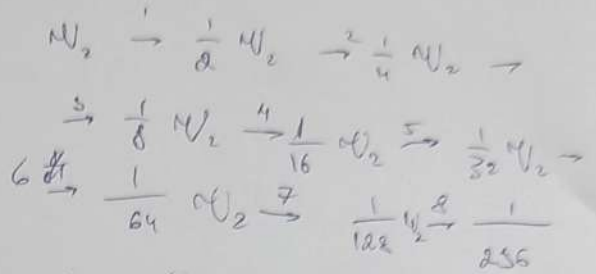 N₂ →¹ 1/2 N₂ →² 1/4 N₂ →
→³ 1/8 N₂ →⁴ 1/16 N₂ →⁵ 1/32 N₂ →
6 → 1/64 N₂ →⁷ 1/128 N₂ →⁸ 1/256